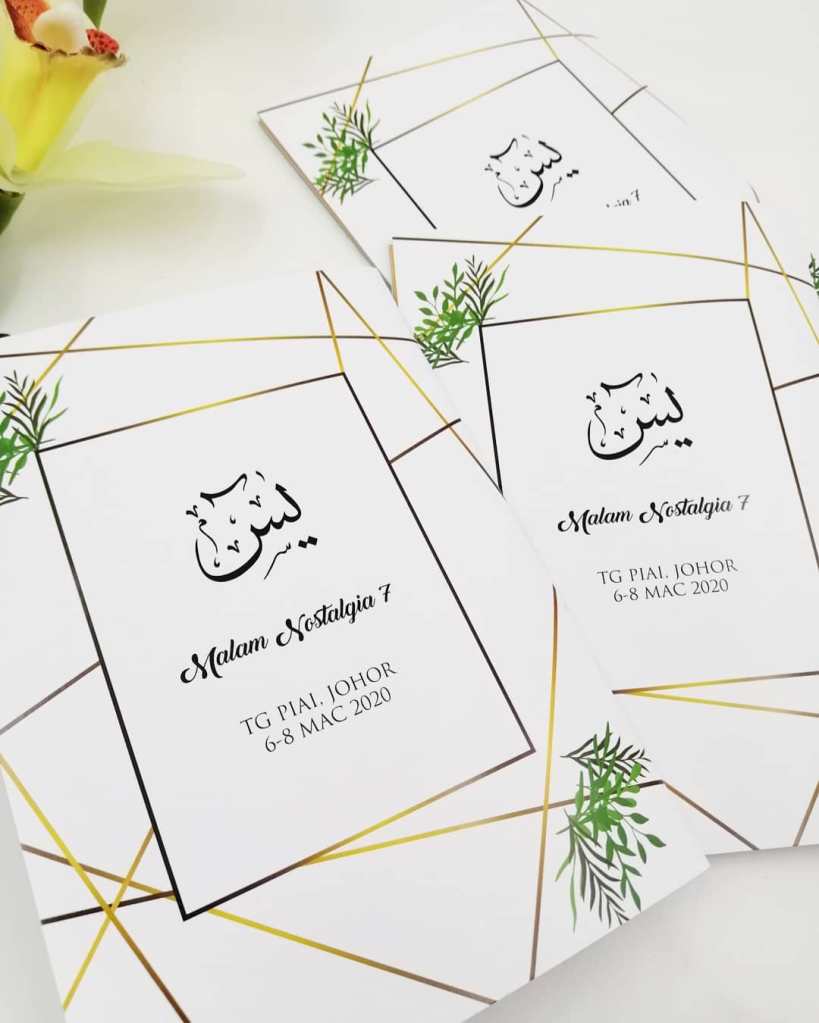 يس
Malam Nostalgia 7
TG PIAI, JOHOR
6-8 MAC 2020
يس
Malam Nostalgia 7
TG PIAI, JOHOR
6-8 MAC 2020
يس